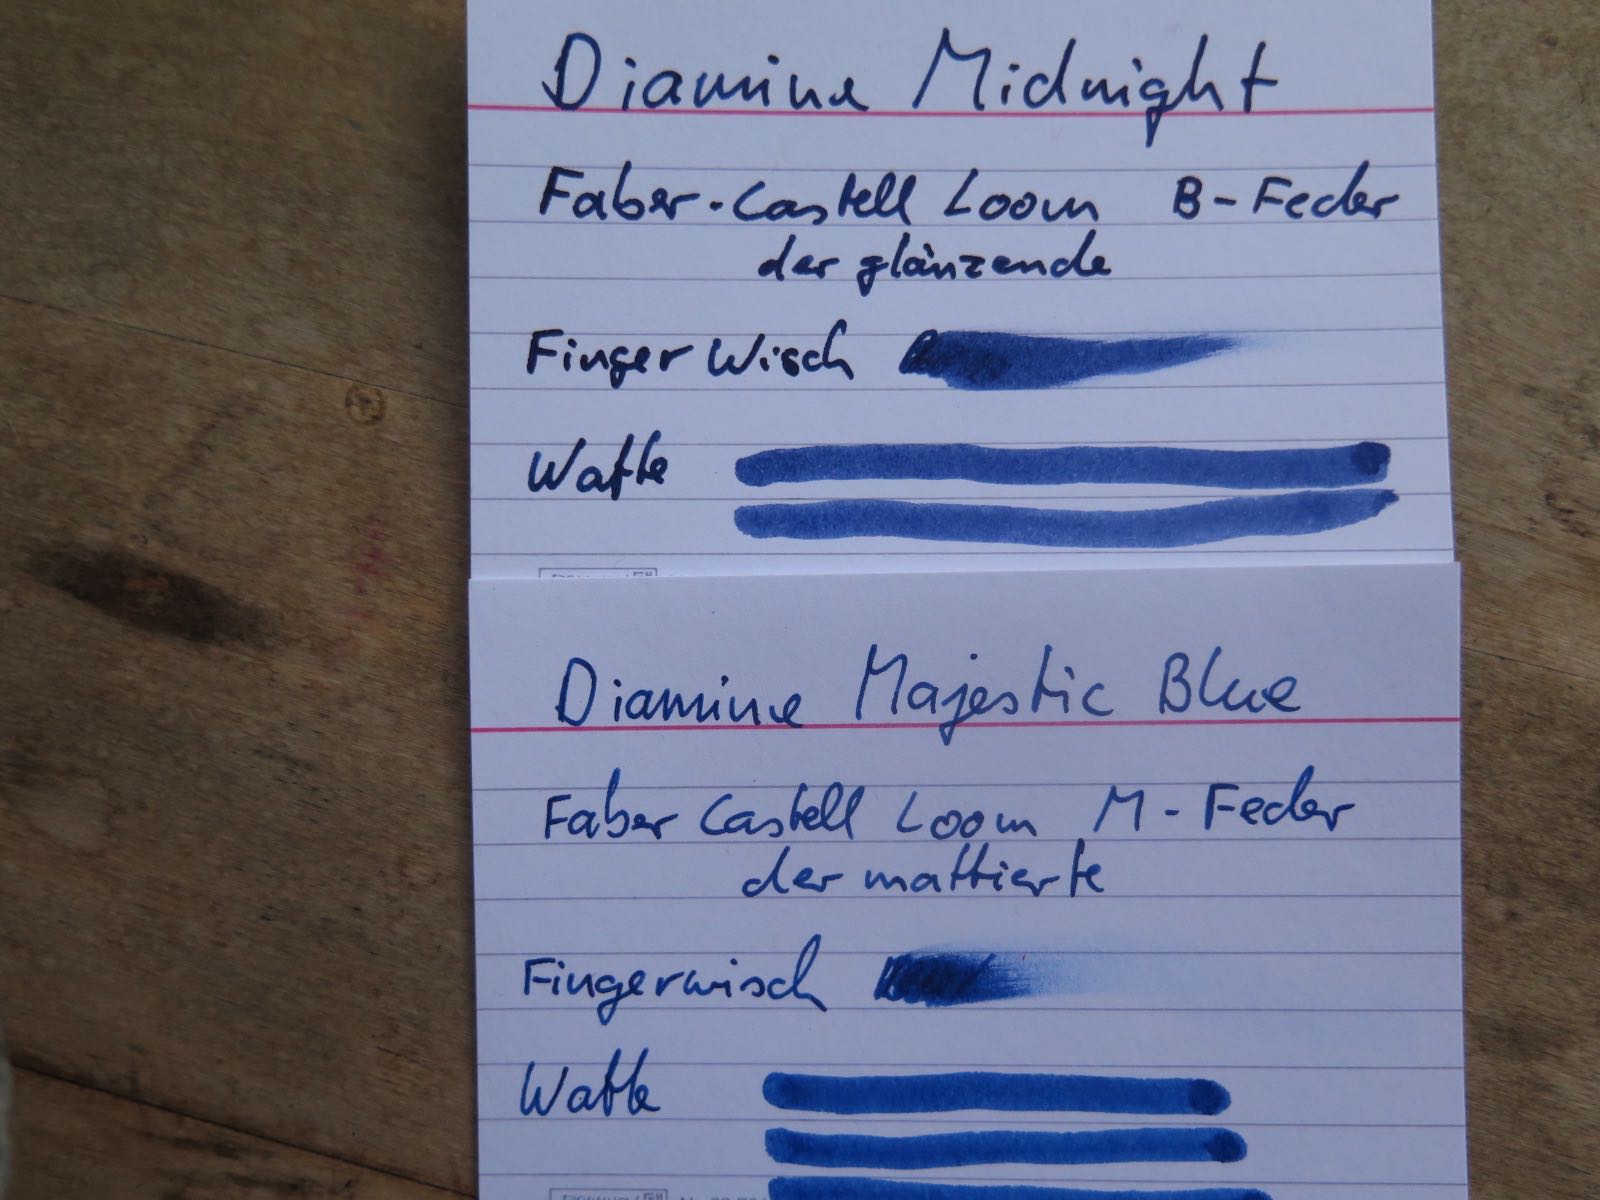 Diamine Midnight
Faber-Castell Loom B-Feder
der glänzende
Finger Wisch
Watte
Diamine Majestic Blue
Faber Castell Loom M-Feder
der mattierte
Fingerwisch
Watte